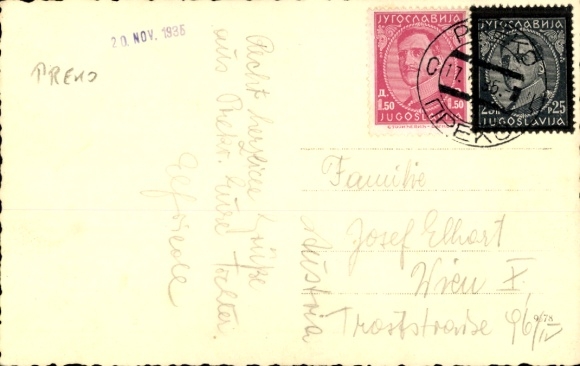 20. NOV. 1935
PREKO
ЈУГОСЛАВИЈА
Д. 1.50 1.50
JUGOSLAVIJA
ЈУГОСЛАВИЈА
25
JUGOSLAVIJA
ПРЕКО
Recht herzliche Grüße
aus Preko. Eure Tochter.
Elfriede
Familie
Josef Elhart
Wien X,
Troststraße 96
Austria